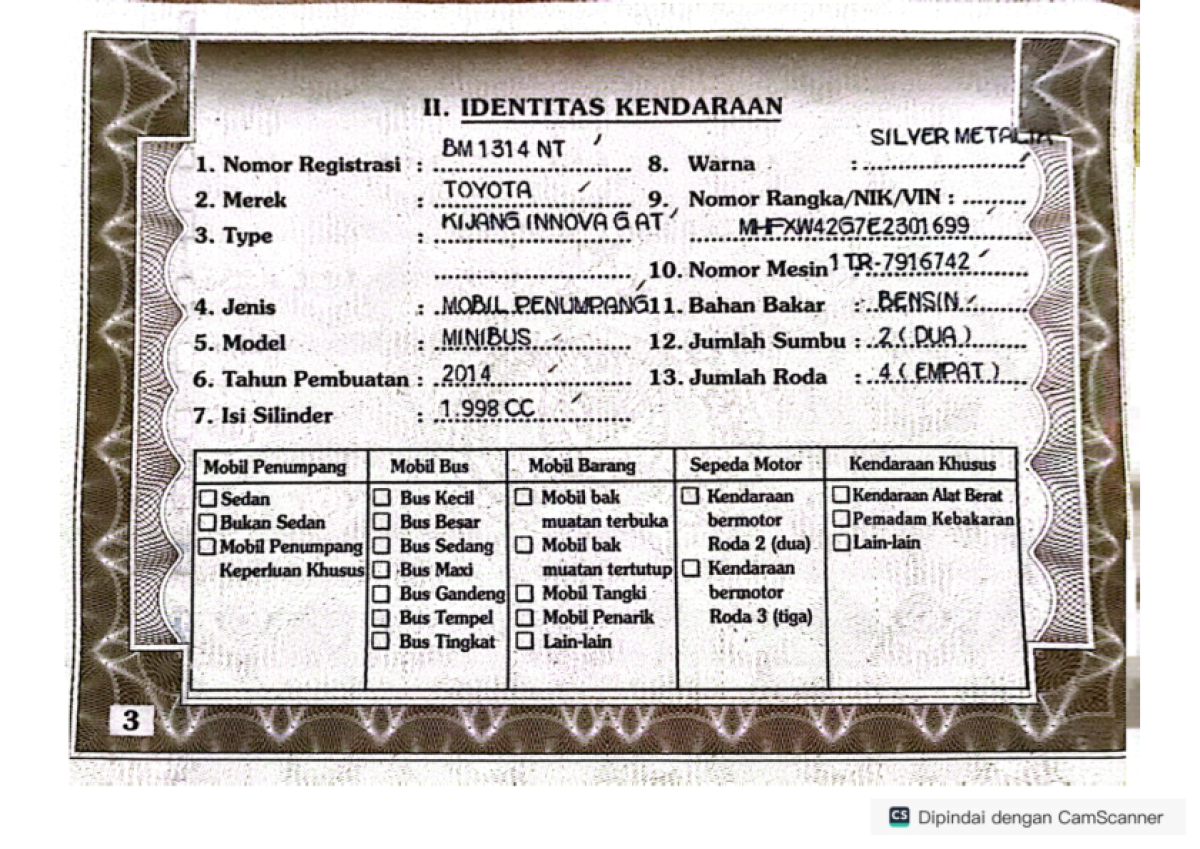 II. IDENTITAS KENDARAAN
1. Nomor Registrasi : BM 1314 NT
2. Merek : TOYOTA
3. Type : KIJANG INNOVA G AT
4. Jenis : MOBIL PENUMPANG
5. Model : MINIBUS
6. Tahun Pembuatan : 2014
7. Isi Silinder : 1.998 CC
8. Warna : SILVER METALIK
9. Nomor Rangka/NIK/VIN :
MHFXW42G7E2301699
10. Nomor Mesin 1TR-7916742
11. Bahan Bakar : BENSIN
12. Jumlah Sumbu : 2 ( DUA )
13. Jumlah Roda : 4 ( EMPAT )
Mobil Penumpang
Sedan
Bukan Sedan
Mobil Penumpang
Keperluan Khusus
Mobil Bus
Bus Kecil
Bus Besar
Bus Sedang
Bus Maxi
Bus Gandeng
Bus Tempel
Bus Tingkat
Mobil Barang
Mobil bak
muatan terbuka
Mobil bak
muatan tertutup
Mobil Tangki
Mobil Penarik
Lain-lain
Sepeda Motor
Kendaraan
bermotor
Roda 2 (dua)
Kendaraan
bermotor
Roda 3 (tiga)
Kendaraan Khusus
Kendaraan Alat Berat
Pemadam Kebakaran
Lain-lain
3
CS Dipindai dengan CamScanner